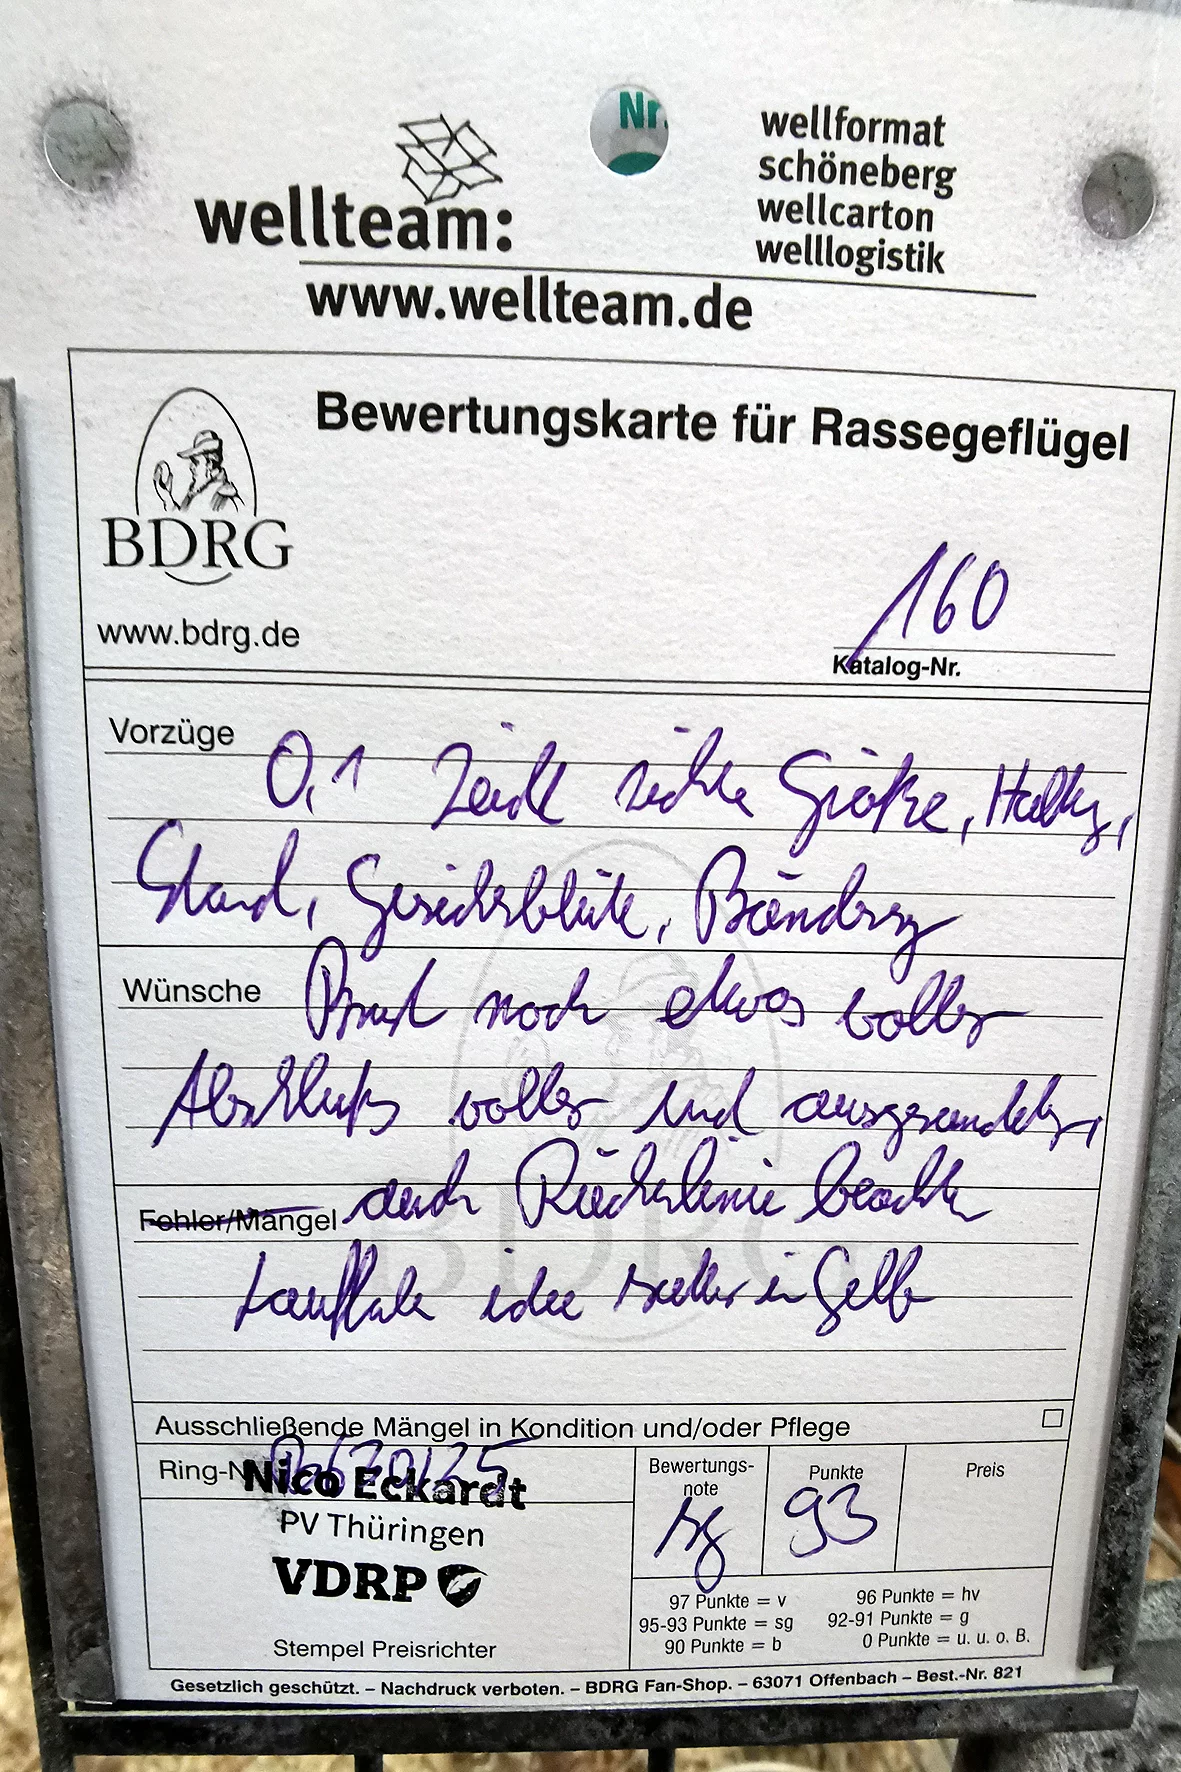 Nr.
wellteam:
www.wellteam.de
wellformat
schöneberg
wellcarton
welllogistik
Bewertungskarte für Rassegeflügel
BDRG
www.bdrg.de
160
Katalog-Nr.
Vorzüge
0,1 Zeigt Größe, Haltg,
Stand, Gesichtsblüte, Bänderung
Wünsche Brust noch etwas voller
Abschluß voller und ausgerundeter,
Fehler/Mängel auch Rückenlinie beachten
Lauffarbe satter in Gelb
Ausschließende Mängel in Kondition und/oder Pflege
Ring-N
Nico Eckardt
PV Thüringen
VDRP
Stempel Preisrichter
Bewertungs-
note
sg
Punkte
93
Preis
97 Punkte = v 96 Punkte = hv
95-93 Punkte = sg 92-91 Punkte = g
90 Punkte = b 0 Punkte = u. u. o. B.
Gesetzlich geschützt. – Nachdruck verboten. – BDRG Fan-Shop. – 63071 Offenbach – Best.-Nr. 821